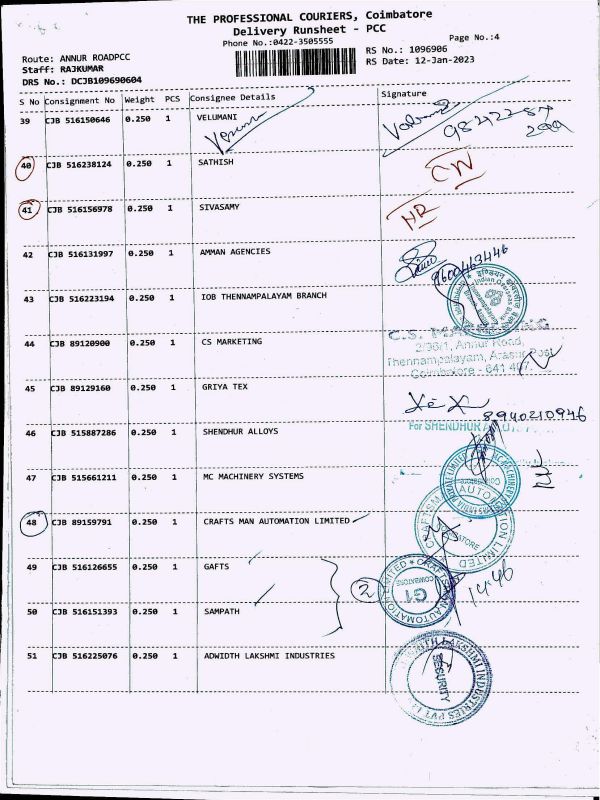 THE PROFESSIONAL COURIERS, Coimbatore
Delivery Runsheet - PCC
Phone No.:0422-3505555
Page No.:4
Route: ANNUR ROADPCC
RS No.: 1096906
Staff: RAJKUMAR
RS Date: 12-Jan-2023
DRS No.: DCJB109690604
S No Consignment No Weight PCS Consignee Details Signature
39 CJB 516150646 0.250 1 VELUMANI
40 CJB 516238124 0.250 1 SATHISH
41 CJB 516156978 0.250 1 SIVASAMY
NR
42 CJB 516131997 0.250 1 AMMAN AGENCIES
9600463446
43 CJB 516223194 0.250 1 IOB THENNAMPALAYAM BRANCH
44 CJB 89120900 0.250 1 CS MARKETING
C.S. MARKETING
2/36/1, Annur Road,
Thennampalayam, Arasur Post
Coimbatore - 641 407.
45 CJB 89129160 0.250 1 GRIYA TEX
8940210946
46 CJB 515887286 0.250 1 SHENDHUR ALLOYS
For SHENDHUR
47 CJB 515661211 0.250 1 MC MACHINERY SYSTEMS
48 CJB 89159791 0.250 1 CRAFTS MAN AUTOMATION LIMITED
CRAFTSMAN AUTOMATION LIMITED
COIMBATORE
49 CJB 516126655 0.250 1 GAFTS
2
CRAFTSMAN AUTOMATION LIMITED
COIMBATORE
G1
14:46
50 CJB 516151393 0.250 1 SAMPATH
51 CJB 516225076 0.250 1 ADWIDTH LAKSHMI INDUSTRIES
LAKSHMI INDUSTRIES PVT LTD
SECURITY